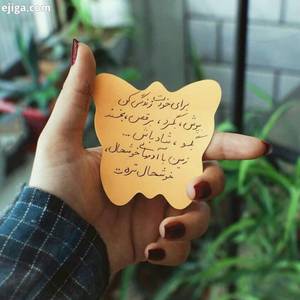 ejiga.com
برای خودت زندگی کن
بپوش، بگرد، برقص، بخند
بلند، شاد باش ...
زمین با آدمای خوشحال،
خوشحال تره